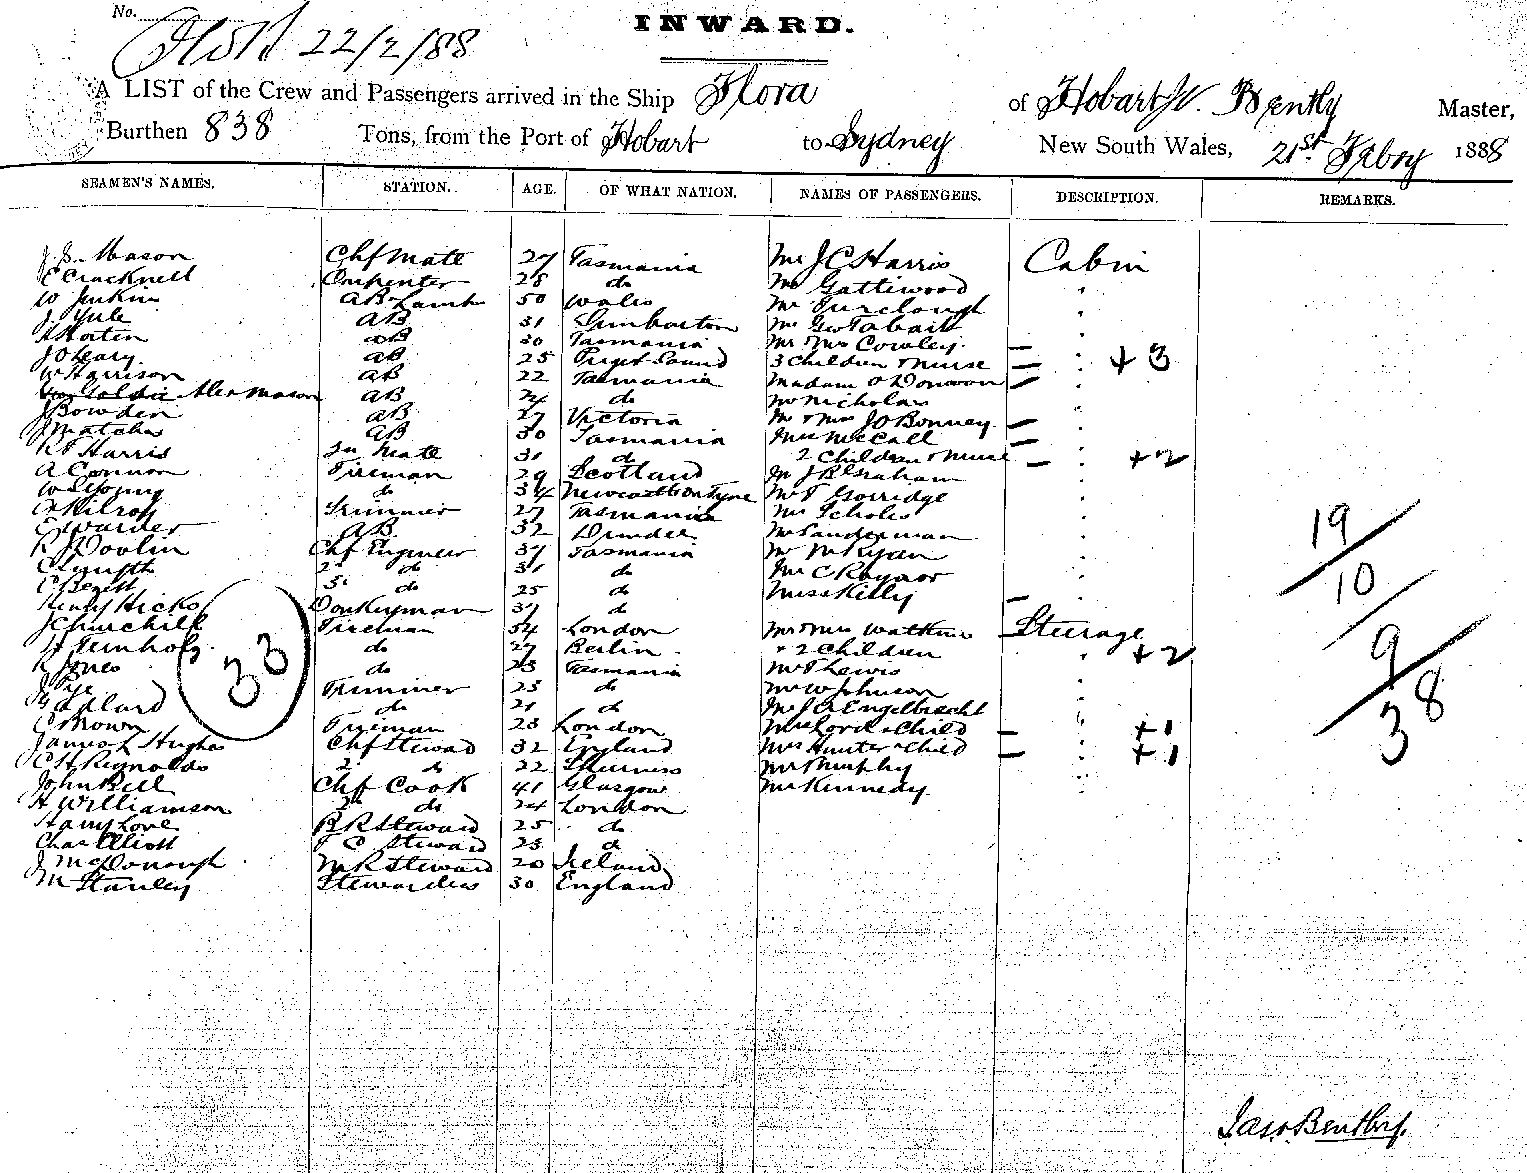 No.
22/2/88
INWARD.
A LIST of the Crew and Passengers arrived in the Ship Flora of Hobart Bently Master,
Burthen 838 Tons, from the Port of Hobart to Sydney New South Wales, 21st Febry 1888
SEAMEN'S NAMES. STATION. AGE. OF WHAT NATION. NAMES OF PASSENGERS. DESCRIPTION. REMARKS.
J.S. Mason Chf Mate 27 Tasmania Mr J C Harris Cabin
E Cracknell Carpenter 28 do Mr Gattiwood "
W Jenkins AB Lamps 50 Wales Mr Turclough "
J. Yule AB 31 Dumbarton Mr Geo Tabart "
AB 30 Tasmania Mr Mrs Cowley "
J O Leary AB 25 Puget Sound 3 Children & Nurse " + 3
W Harrison AB 22 Tasmania Madam O Donovon "
Alex Mason AB 24 do Mr Nicholas "
J Bowden AB 27 Victoria Mr & Mrs J O Bonney "
J Matches AB 30 Tasmania Mrs McCall "
R T Harris 2n Mate 31 do 2 Children & Nurse " + 2
A Connon Fireman 29 Scotland Mr J B Graham "
W S Young do 34 Newcastle on Tyne Mr T Gorridge "
Kilroy Trimmer 27 Tasmania Mr Scholes "
E Warder AB. 32 Dundee Mr Sanderman "
R J Dovlin Chf Engineer 37 Tasmania Mr M Ryan "
2" do 31 do Mr C Raynor "
3" do 25 do Miss Kelly
Henry Hicks Donkeyman 37 do
J Churchill Fireman 54 London Mr & Mrs Watkins Steerage
do 27 Berlin + 2 Children " + 2
R Jones do 23 Tasmania Mr T Lewis "
J Pye Trimmer 23 do Mr W Johnson "
do 21 do Mr J A Engelbrecht "
C Brown Fireman 23 London Mrs Lord & Child " + 1
James L Hughes Chf Steward 32 England Mrs Hunter & Child " + 1
C H Reynolds 2" do 22 Sheerness Mr Murphy "
John Bell Chf Cook 41 Glasgow Mr Kennedy "
H Williamson 2" do 24 London
Harry Love B R Steward 25 do
Chas Elliott F C Steward 23 do
J McDonough M R Steward 20 Ireland
M Stanley Stewardess 30 England
33
19
10
9
38